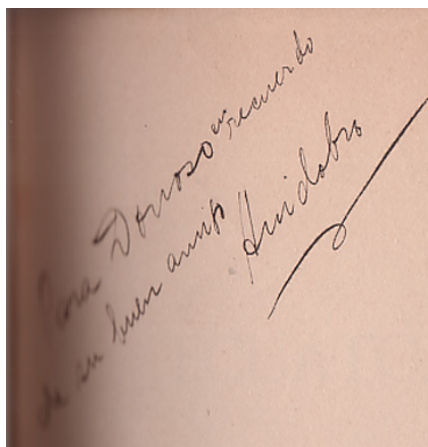 Para Donoso en recuerdo
de su buen amigo Huidobro